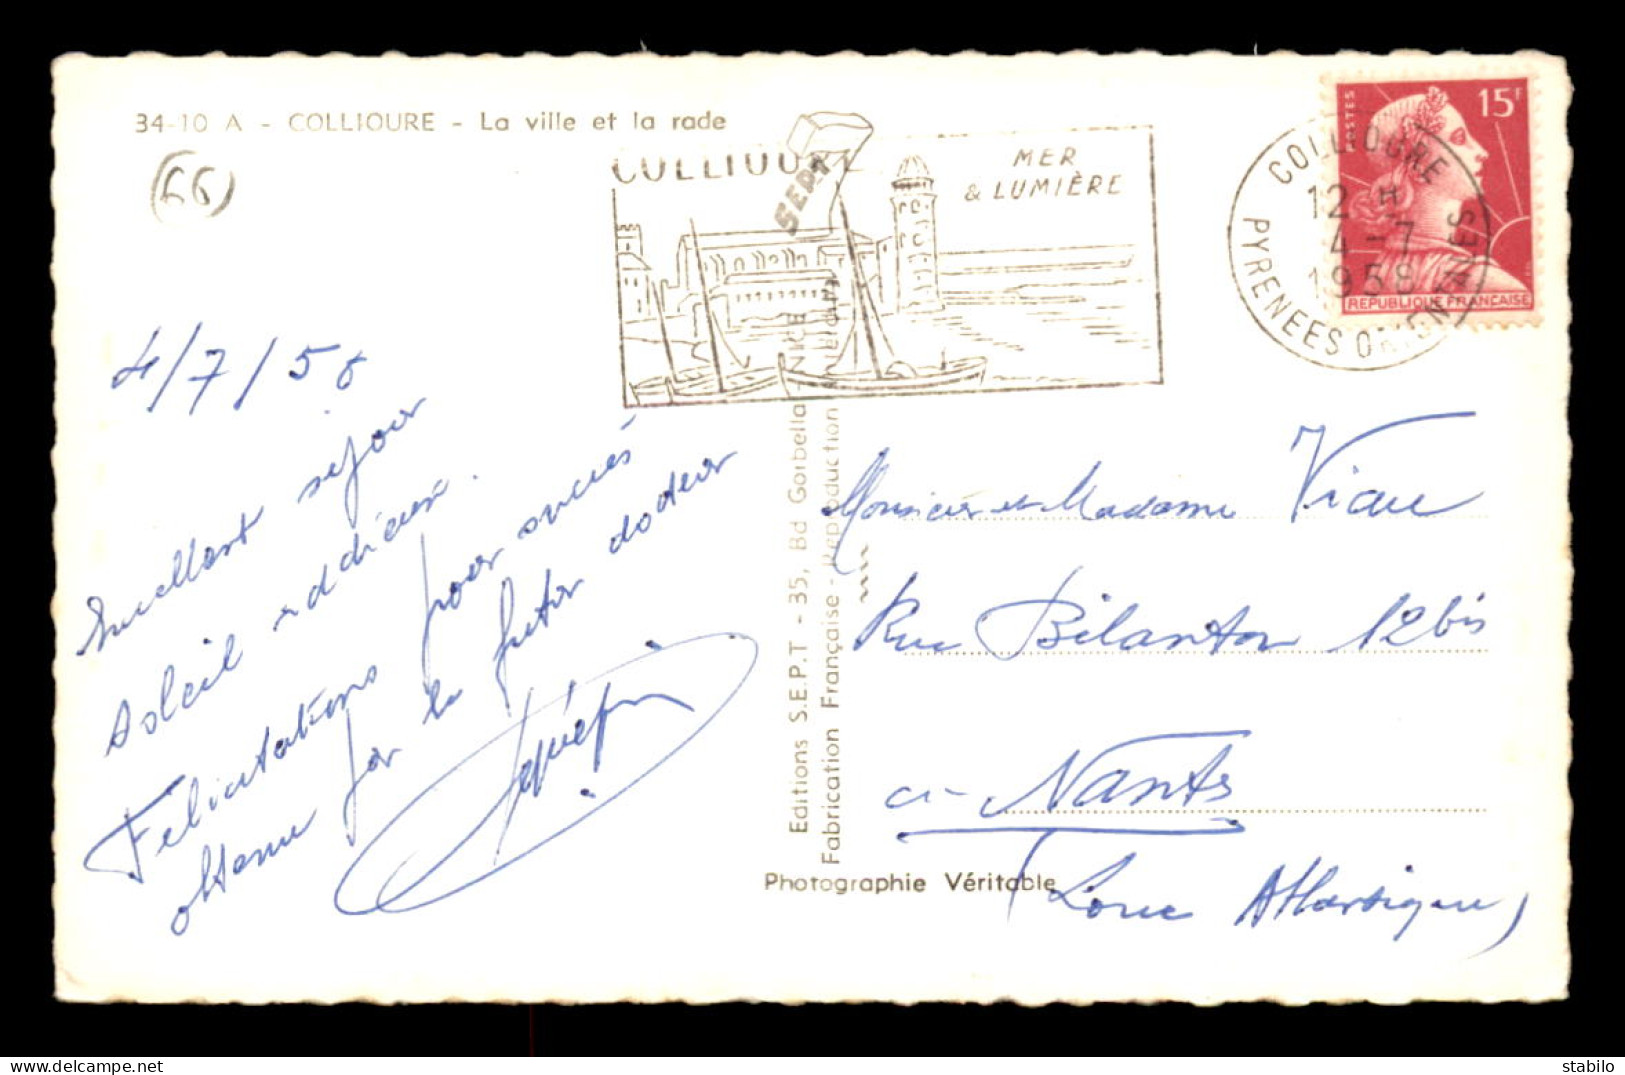 34-10 A - COLLIOURE - La ville et la rade
(66)
COLLIOURE
MER
& LUMIÈRE
SEPT
COLLIOURE
12 H
4-7
1958
PYRENEES ORIENTALES
POSTES
15F
REPUBLIQUE FRANÇAISE
4/7/58
Excellent séjour
Soleil radieux.
Félicitations pour succès
obtenu par le futur docteur
Monsieur et Madame Viau
Rue Bilanton 12 bis
à Nantes
(Loire Atlantique)
Editions S.E.P.T - 35, Bd Gorbella - NICE
Fabrication Française - Reproduction
Photographie Véritable
stabilo